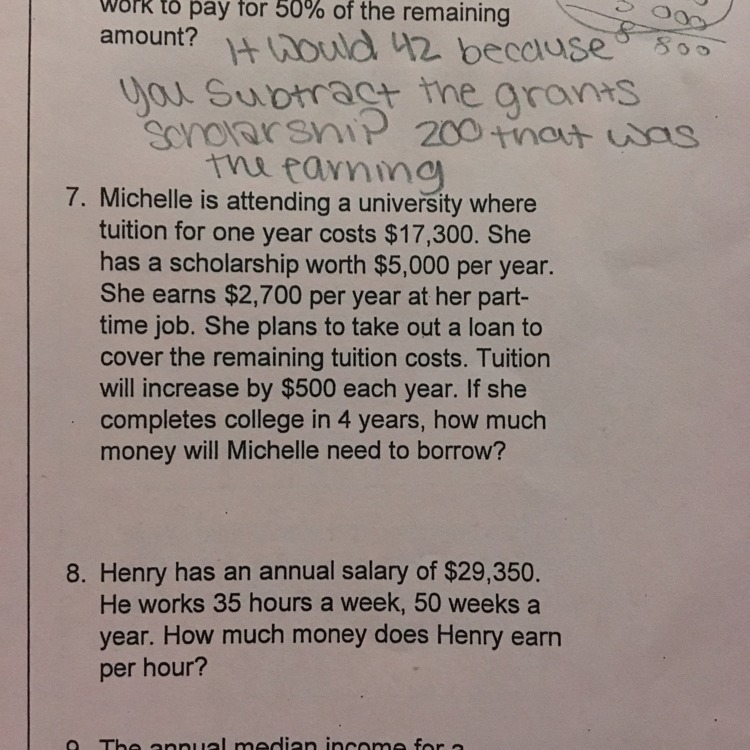 work to pay for 50% of the remaining
amount?
000
800
It would 42 because
you Subtract the grants
scholarship 200 that was
the earning
7. Michelle is attending a university where
tuition for one year costs $17,300. She
has a scholarship worth $5,000 per year.
She earns $2,700 per year at her part-
time job. She plans to take out a loan to
cover the remaining tuition costs. Tuition
will increase by $500 each year. If she
completes college in 4 years, how much
money will Michelle need to borrow?
8. Henry has an annual salary of $29,350.
He works 35 hours a week, 50 weeks a
year. How much money does Henry earn
per hour?
9. The annual median income for a